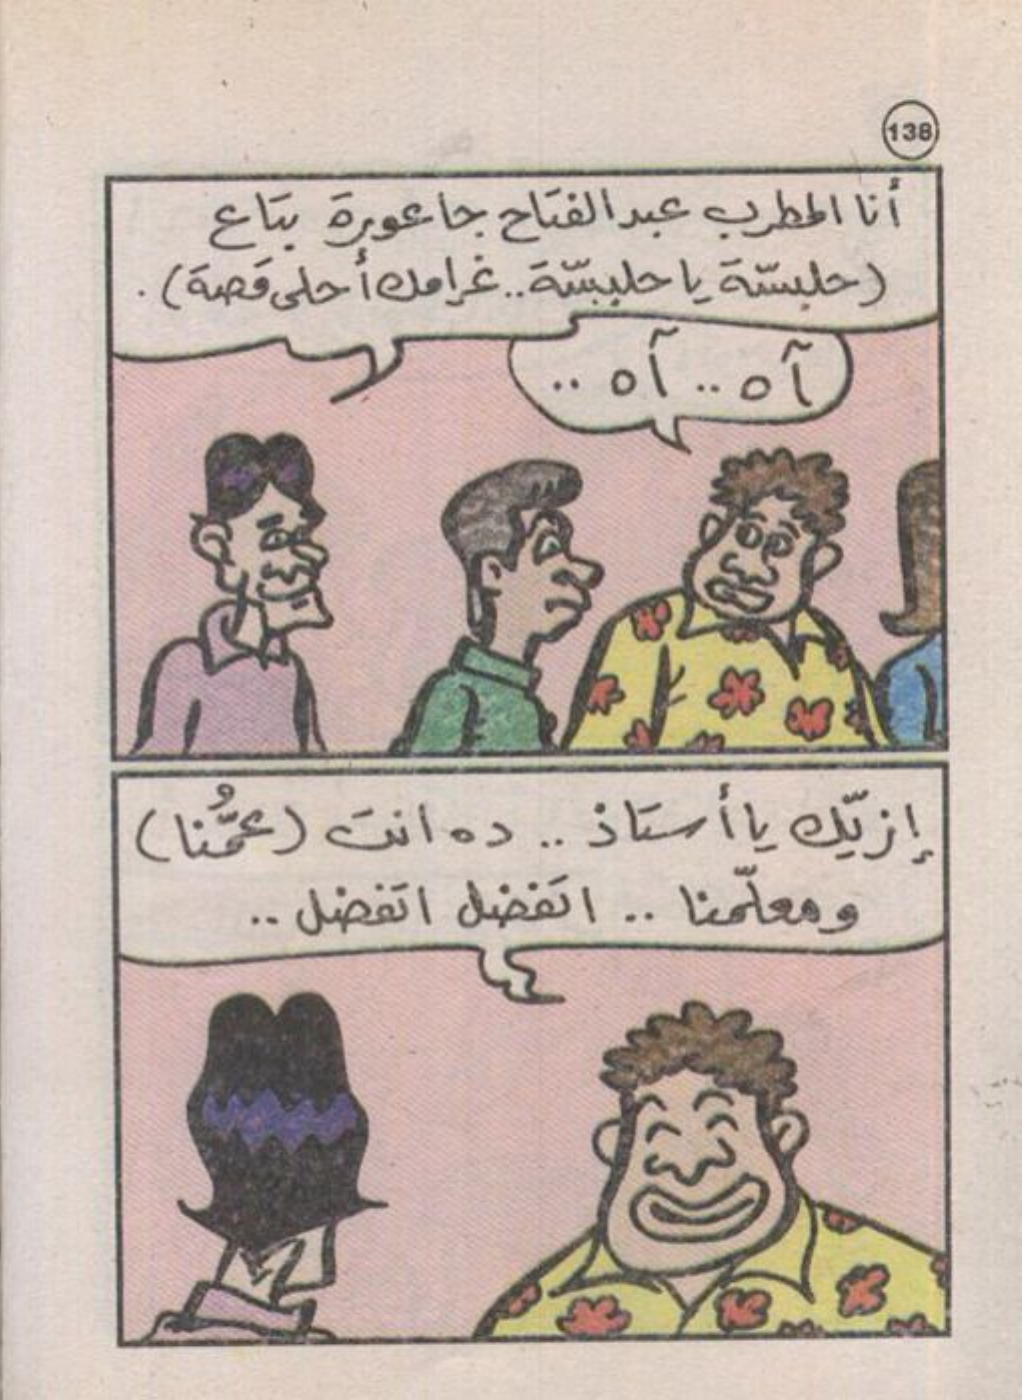 138
أنا المطرب عبد الفتاح جاعورة بتاع
(حلبسّة يا حلبسّة.. غرامك أحلى قصة).
آه.. آه..
إزيّك يا أستاذ.. ده انتَ (عمُّنا)
ومعلّمنا.. اتفضل اتفضل..